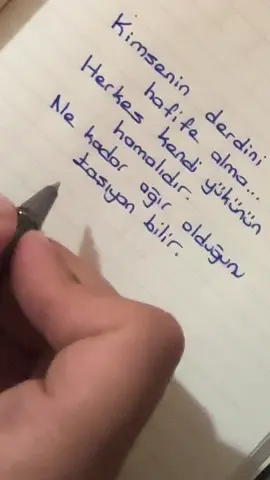 Kimsenin derdini
hafife alma...
Herkes kendi yükünün
hamalıdır.
Ne kadar ağır olduğunu
taşıyan bilir.